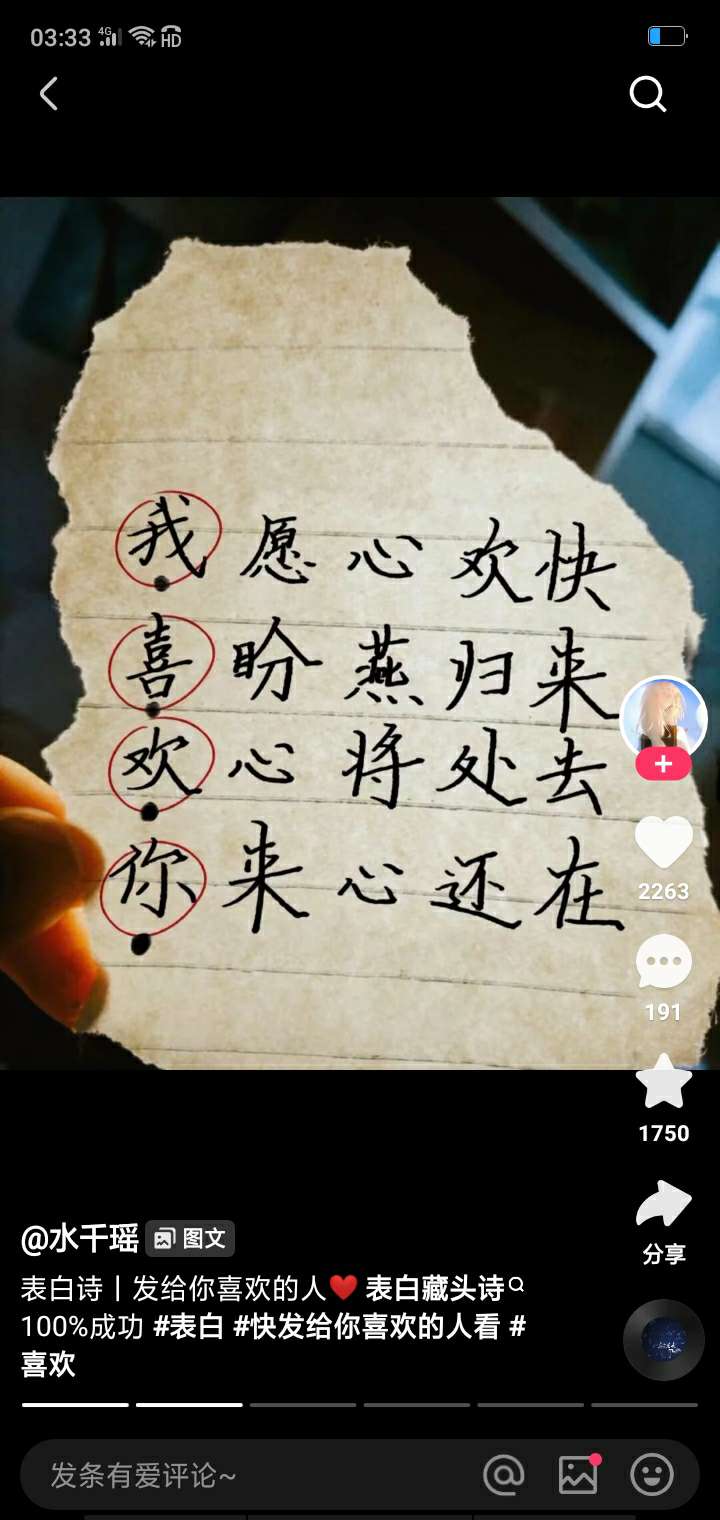 03:33 4G HD
我愿心欢快
喜盼燕归来
欢心将处去
你来心还在
2263
191
1750
分享
@水千瑶 图文
表白诗丨发给你喜欢的人❤️ 表白藏头诗
100%成功 #表白 #快发给你喜欢的人看 #
喜欢
发条有爱评论~